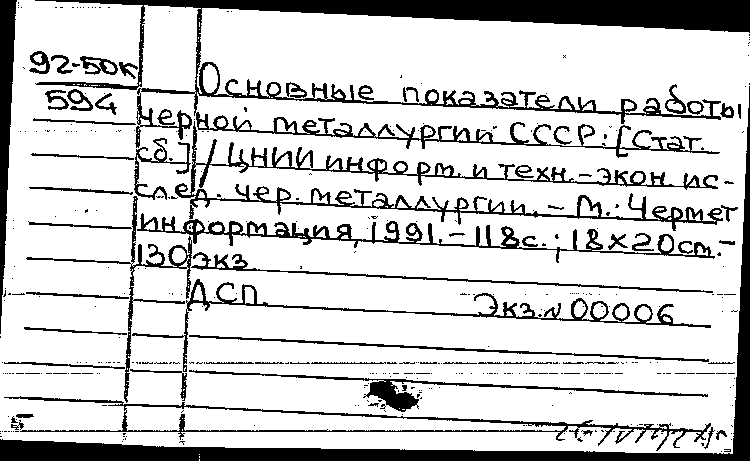 92-50к
594
Основные показатели работы
черной металлургии СССР: [Стат.
сб.] / ЦНИИ информ. и техн.-экон. ис-
след. чер. металлургии. - М.: Чермет
информация, 1991. - 118 с.; 18×20 см. -
130 экз.
ДСП. Экз. № 00006
5